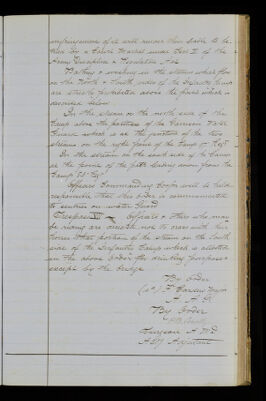 infringement of it will render them liable to be
tried by a Court Martial under Sect II of the
Army Discipline & Regulation Act
Bathing & washing in the streams which flow
on the North & South sides of the Infantry Camp
are strictly prohibited above the points which is
described below
In the stream on the north side of the
Camp above the position of the Garrison Water
Guard which is at the junction of the two
streams on the right front of the Camp 17 Regt
In the stream on the south side of the Camp
at the point of the path leading down from the
Camp Regt
Officers Commanding Corps will be held
responsible that this order is communicated
to sentries on water Guard
Trespass VII Officers & others who may
be riding are directed not to cross with their
horses that portion of the stream on the South
side of the Infantry Camp which is allotted
in the above order for drinking purposes
except by the bridge
By Order
Major
A. A. G.
By Order
Surgeon A M D
Adjutant